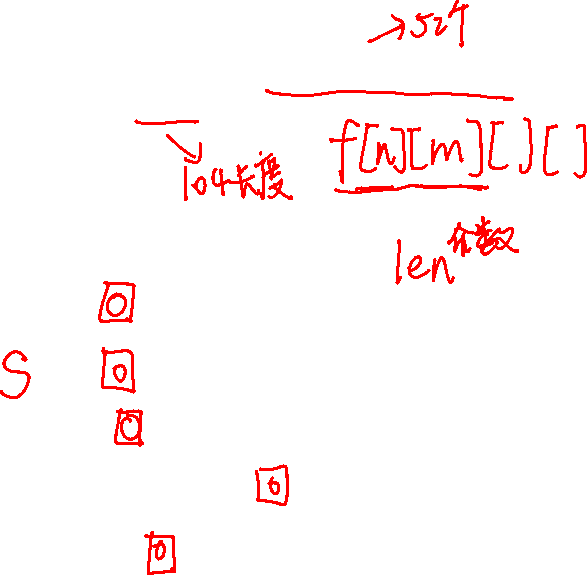 →52个
104长度
f[n][m][][]
len个数
0
S
0
0
0
0